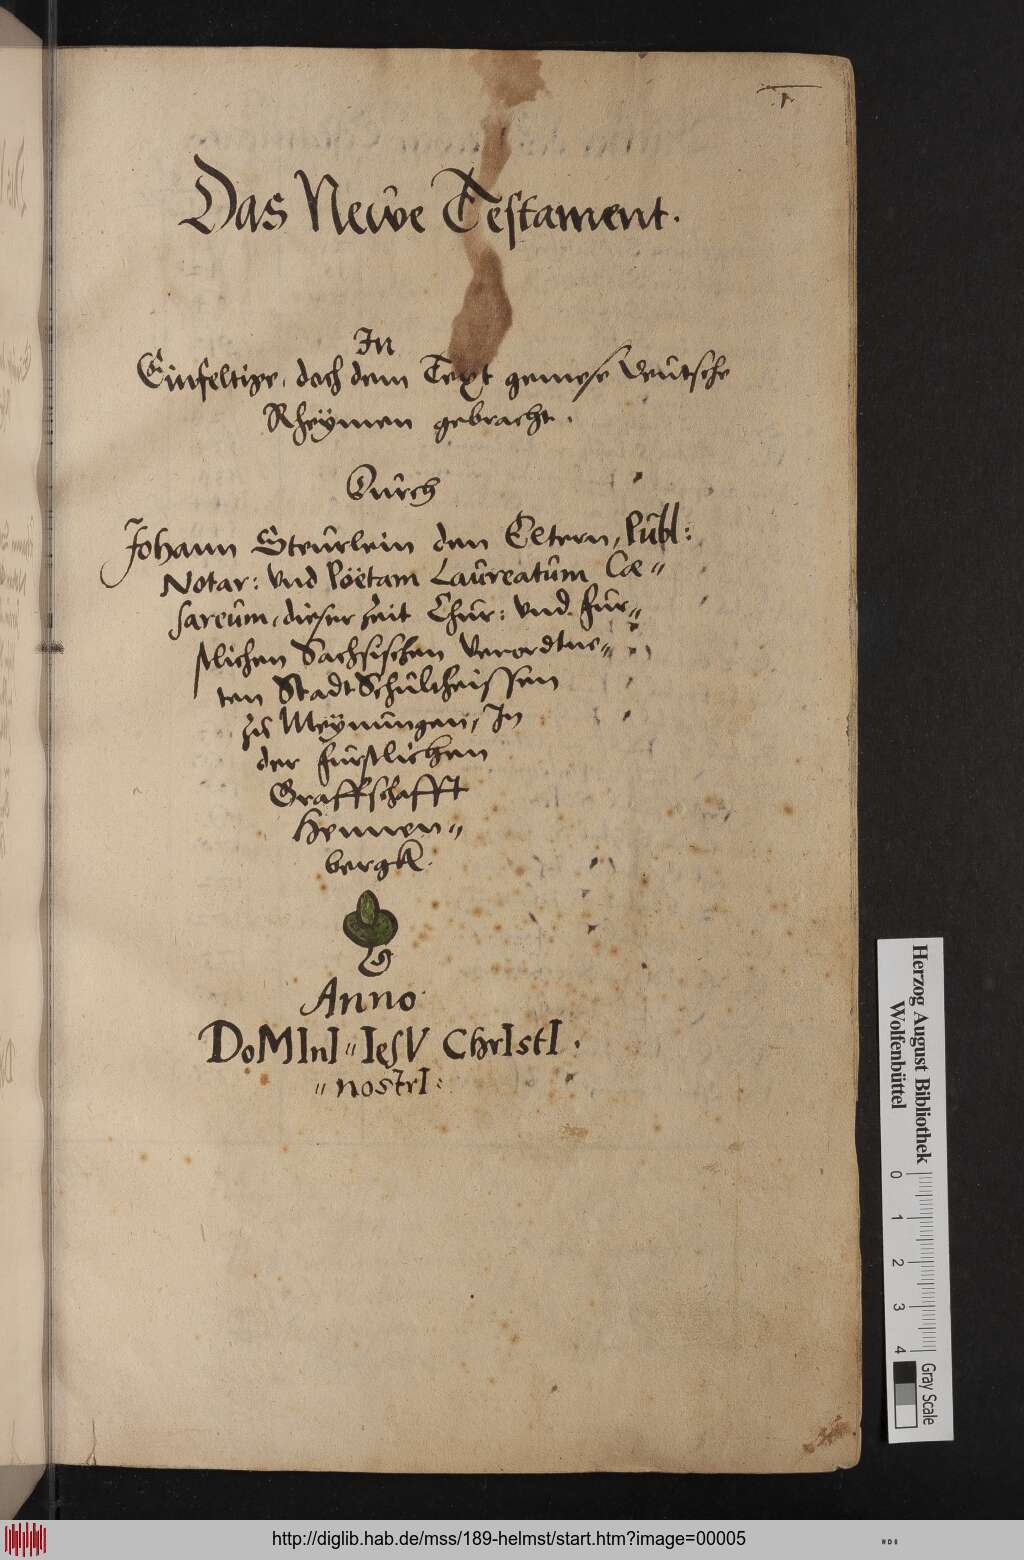 1
Das Newe Testament.
In
Einfeltige, doch dem Text gemese Deutsche
Rheÿmen gebracht.
Durch
Johann Steurlein den Eltern, Publ:
Notar: vnd Pöëtam Laureatum Cæ〃
sareum, dieser Zeit Chür: vnd. fur〃
stlichen Sachsischen Verordtne〃
ten StadtSchultheissen
zu Meÿnungen, In
der fürstlichen
Graffschafft
Hennen〃
bergk.
Anno
DoMInI〃IesV ChrIstI.
〃nostrI:
Herzog August Bibliothek
Wolfenbüttel
0 1 2 3 4
Gray Scale
http://diglib.hab.de/mss/189-helmst/start.htm?image=00005